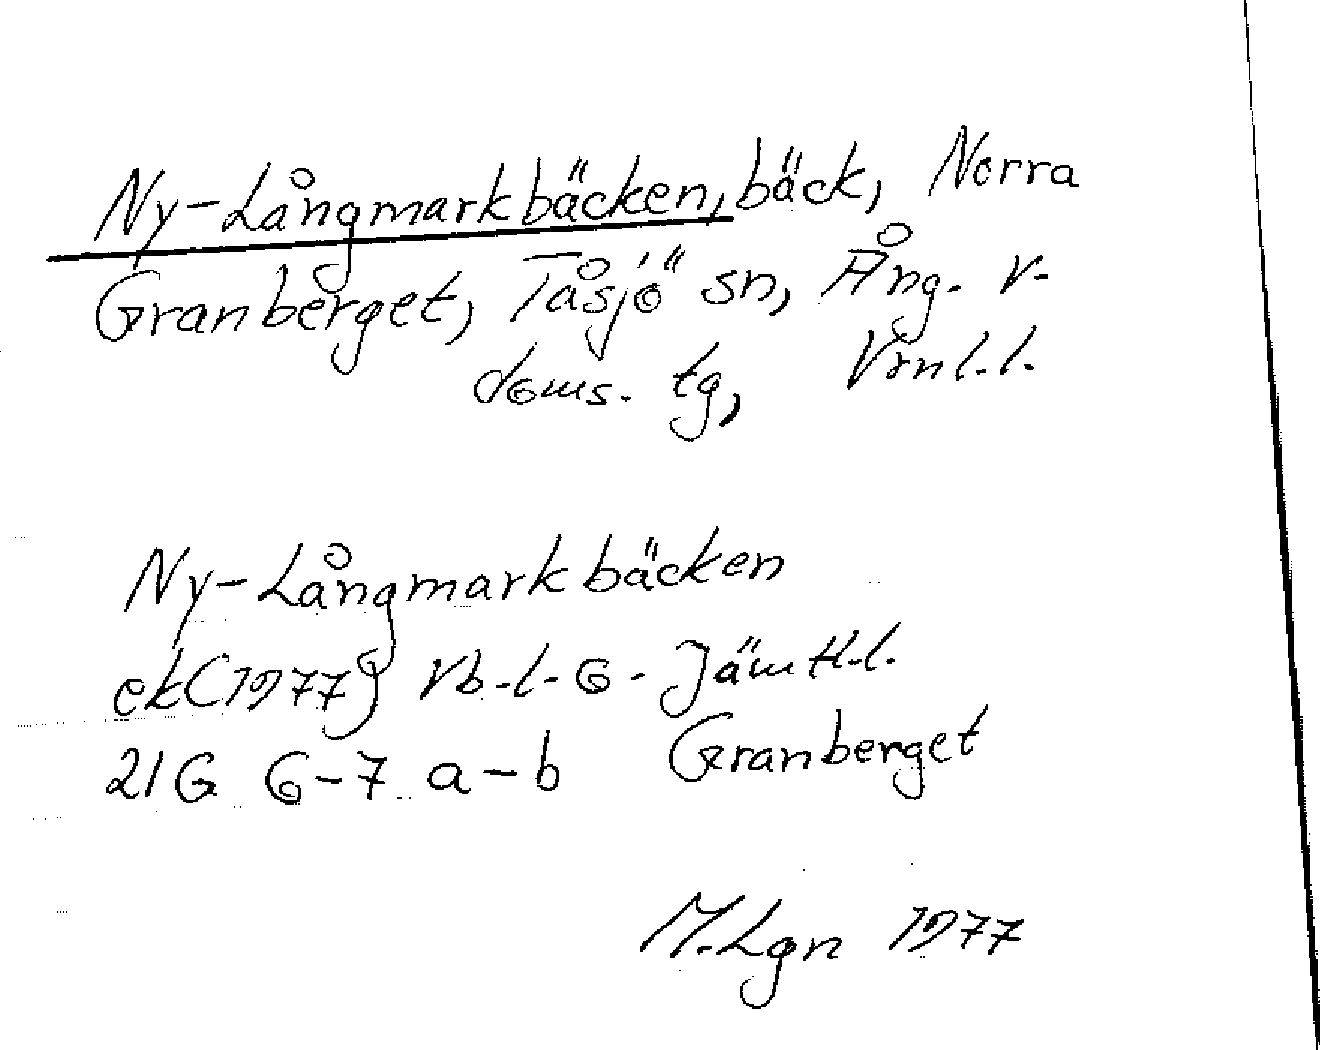 Ny-Långmarkbäcken, bäck, Norra
Granberget, Tåsjö sn, Ång. V-
doms. tg, Vrnl.l.
Ny-Långmarkbäcken
ek(1977) Vb-l-o-Jämtl.l.
21G 6-7 a-b Granberget
M.Lgn 1977